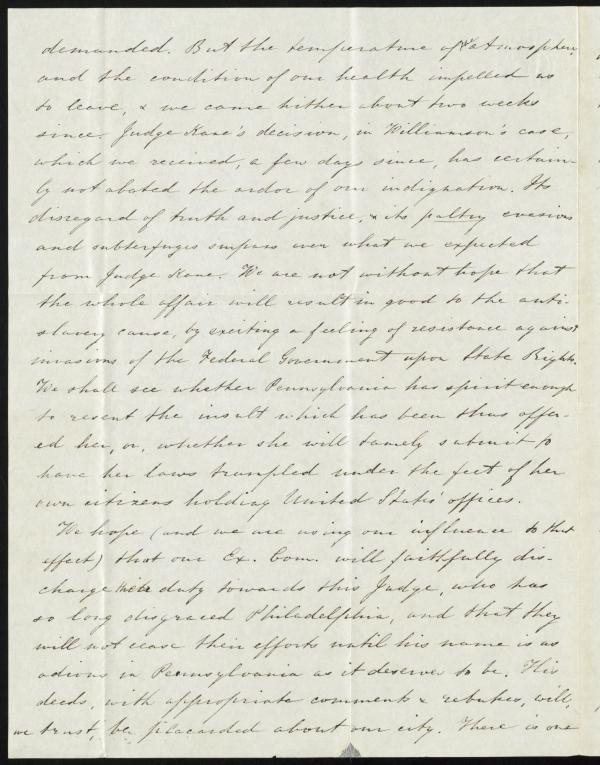 demanded. But the temperature of the atmosphere,
and the condition of our health impelled us
to leave, & we came hither about two weeks
since. Judge Kane's decision, in Williamson's case,
which we received, a few days since, has certain-
ly not abated the ardor of our indignation. Its
disregard of truth and justice, & its paltry evasions
and subterfuges surpass even what we expected
from Judge Kane. We are not without hope that
the whole affair will result in good to the anti-
slavery cause, by exciting a feeling of resistance against
invasions of the Federal Government upon State Rights.
We shall see whether Pennsylvania has spirit enough
to resent the insult which has been thus offer-
ed her, or, whether she will tamely submit to
have her laws trampled under the feet of her
own citizens holding United States' offices.
We hope (and we are using our influence to that
effect) that our Ex. Com. will faithfully dis-
charge their duty towards this Judge, who has
so long disgraced Philadelphia, and that they
will not cease their efforts until his name is as
odious in Pennsylvania as it deserves to be. His
deeds, with appropriate comments & rebukes, will,
we trust, be placarded about our city. There is one